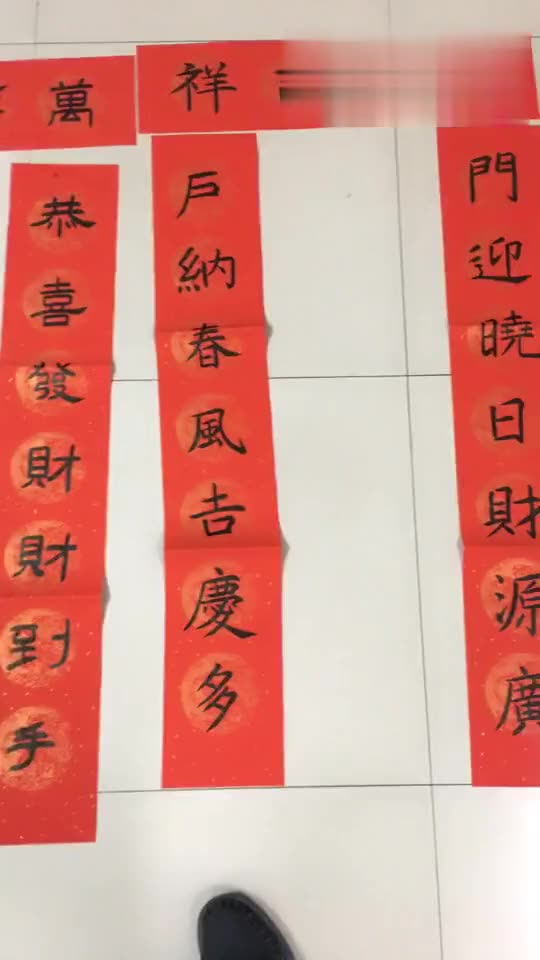 祥
萬
門迎曉日財源廣
戶納春風吉慶多
恭喜發財財到手